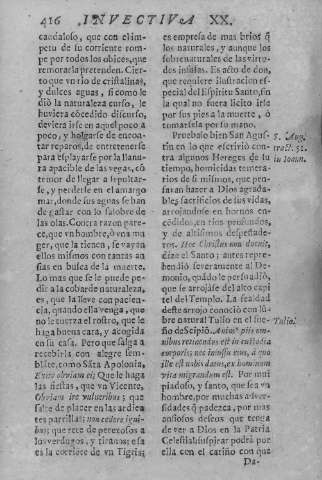 416 INVECTIVA XX.
caudaloso, que con el im-
petu de su corriente rom-
pe por todos los obices, que
remorarla pretenden. Cier-
to que vn rio de cristalinas,
y dulces aguas, si como le
diò la naturaleza curso, le
huviera cõcedido discurso,
deviera irse en aquel poco à
poco, y holgarse de encon-
tar reparos, de entretenerse
para esplayarse por la llanu-
ra apacible de las vegas, cõ
temor de llegar à sepultar-
se, y perderse en el amargo
mar, donde sus aguas se han
de gastar con lo salobre de
las olas. Contra razon pare-
ce, que vn hombre, ò vna mu
ger, que la tienen, se vayan
ellos mismos con tantas an
sias en busca de la muerte.
Lo mas que se le puede pe-
dir à la cobarde naturaleza,
es, que la lleve con pacien-
cia, quando ella venga, que
no le tuerza el rostro, que le
haga buena cara, y acogida
en su casa. Pero que salga à
recebirla con alegre sem-
blãte, como Sãta Apolonia,
Exire obviam ei; Que le haga
las fiestas, que vn Vicente,
Obviam ire vulneribus; que
salte de placer en las ardiẽ-
tes parrillas: non cedere igni-
bus; que rete de perezosos à
los verdugos, y tiranos; esa
es la corriere de vn Tigris;
es empresa de mas brios q̃
los naturales, y aunque los
sobrenaturales de las virtu-
des infusas. Es acto de don,
que requiere ilustracion es-
pecial del Espiritu Santo, sin
la qual no fuera licito irse
por sus pies à la muerte, ò
tomarsela por su mano.
Pruebalo bien San Agus-
tin en lo que escriviò con-
tra algunos Hereges de su
tiempo, homicidas temera-
rios de si mismos, que pen-
savan hazer à Dios agrada-
bles sacrificios de sus vidas,
arrojandose en hornos en-
cẽdidos, en rios profundos,
y de altisimos despeñade-
ros. Hoc Christus non docuit,
dize el Santo; antes repre-
hendiò severamente al De-
monio, quãdo le persuadiò,
que se arrojàse del alto capi
tel del Templo. La fealdad
deste arrojo conociò con lũ
bre natural Tulio en el sue-
ño de Scipiõ.
ille est vobis datus, ex hominum
vita migrandum est. Por mui
piadoso, y santo, que sea vn
hombre, por muchas adver-
sidades q̃ padezca, por mas
ansiosos deseos que tenga
de ver à Dios en la Patria
Celestial: suspirar podrà por
ella con el cariño con que
Da-
S. Aug.
tract. 51.
in Ioann.
Tulio.